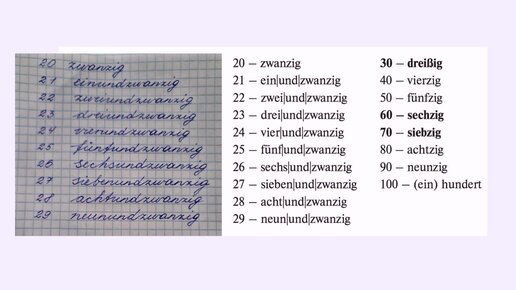 20 zwanzig
21 einundzwanzig
22 zweiundzwanzig
23 dreiundzwanzig
24 vierundzwanzig
25 fünfundzwanzig
26 sechsundzwanzig
27 siebenundzwanzig
28 achtundzwanzig
29 neunundzwanzig
20 – zwanzig
21 – ein|und|zwanzig
22 – zwei|und|zwanzig
23 – drei|und|zwanzig
24 – vier|und|zwanzig
25 – fünf|und|zwanzig
26 – sechs|und|zwanzig
27 – sieben|und|zwanzig
28 – acht|und|zwanzig
29 – neun|und|zwanzig
30 – dreißig
40 – vierzig
50 – fünfzig
60 – sechzig
70 – siebzig
80 – achtzig
90 – neunzig
100 – (ein) hundert